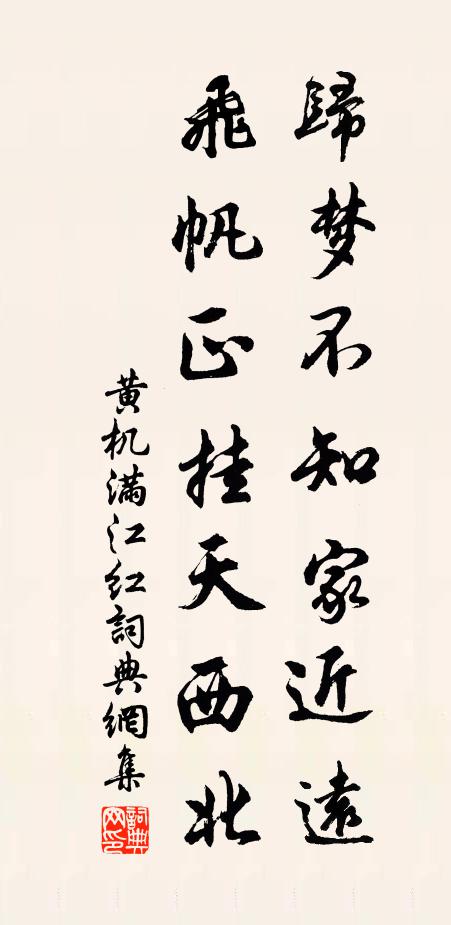 歸梦不知家近遠
飛帆正挂天西北
黄机满江红詞典網集
詞典網印